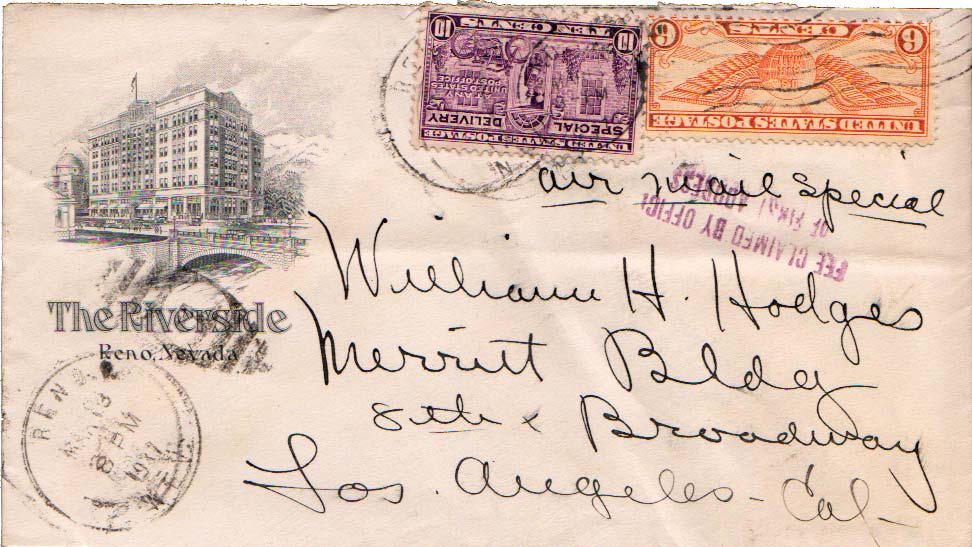 10 TEN CENTS 10
SPECIAL DELIVERY
AT ANY
UNITED STATES
POST OFFICE
UNITED STATES POSTAGE
6 CENTS 6
UNITED STATES POSTAGE
air mail special
FEE CLAIMED BY OFFICE
OF FIRST ADDRESS
The Riverside
Reno, Nevada
William H. Hodges
Merritt Bldg
8th & Broadway
Los. Angeles - Cal -
RENO
PM
NEV.